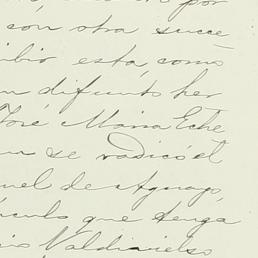 por
con otra suce
está, como
difunto her
José Maria Eche
se radicó el
uel de Aguayo,
culo que tenga
Valdivieso